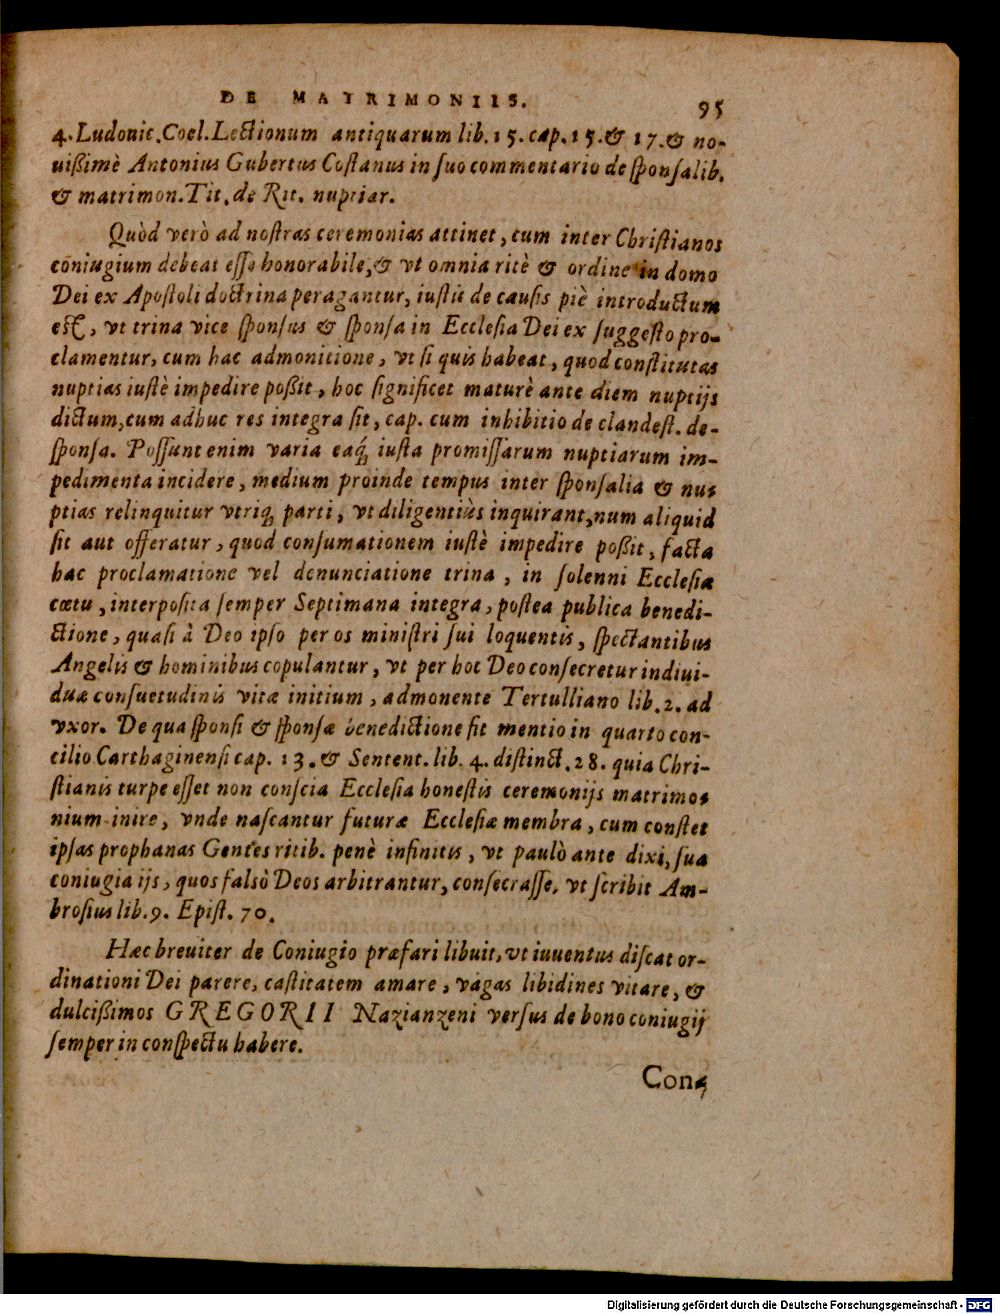 DE MATRIMONIIS. 95
4. Ludouic. Coel. Lectionum antiquarum lib. 15. cap. 15. & 17. & no-
uißimè Antonius Gubertus Costanus in suo commentario de sponsalib.
& matrimon. Tit. de Rit. nuptiar.
Quòd verò ad nostras ceremonias attinet, cum inter Christianos
coniugium debeat esse honorabile, & vt omnia ritè & ordine in domo
Dei ex Apostoli doctrina peragantur, iustis de causis piè introductum
est, vt trina vice sponsus & sponsa in Ecclesia Dei ex suggesto pro-
clamentur, cum hac admonitione, vt si quis habeat, quod constitutas
nuptias iustè impedire poßit, hoc significet maturè ante diem nuptijs
dictum, cum adhuc res integra sit, cap. cum inhibitio de clandest. de-
sponsa. Possunt enim varia eaq́; iusta promissarum nuptiarum im-
pedimenta incidere, medium proinde tempus inter sponsalia & nu-
ptias relinquitur vtriq; parti, vt diligentiùs inquirant, num aliquid
sit aut offeratur, quod consumationem iustè impedire poßit, facta
hac proclamatione vel denunciatione trina, in solenni Ecclesiæ
cœtu, interposita semper Septimana integra, postea publica benedi-
ctione, quasi à Deo ipso per os ministri sui loquentis, spectantibus
Angelis & hominibus copulantur, vt per hoc Deo consecretur indiui-
duæ consuetudinis vitæ initium, admonente Tertulliano lib. 2. ad
vxor. De qua sponsi & sponsæ benedictione fit mentio in quarto con-
cilio Carthaginensi cap. 13. & Sentent. lib. 4. distinct. 28. quia Chri-
stianis turpe esset non conscia Ecclesia honestis ceremonijs matrimo-
nium inire, vnde nascantur futuræ Ecclesiæ membra, cum constet
ipsas prophanas Gentes ritib. penè infinitis, vt paulò ante dixi, sua
coniugia ijs, quos falsò Deos arbitrantur, consecrasse, vt scribit Am-
brosius lib. 9. Epist. 70.
Hæc breuiter de Coniugio præfari libuit, vt iuuentus discat or-
dinationi Dei parere, castitatem amare, vagas libidines vitare, &
dulcißimos GREGORII Nazianzeni versus de bono coniugij
semper in conspectu habere.
Con-
Digitalisierung gefördert durch die Deutsche Forschungsgemeinschaft - DFG